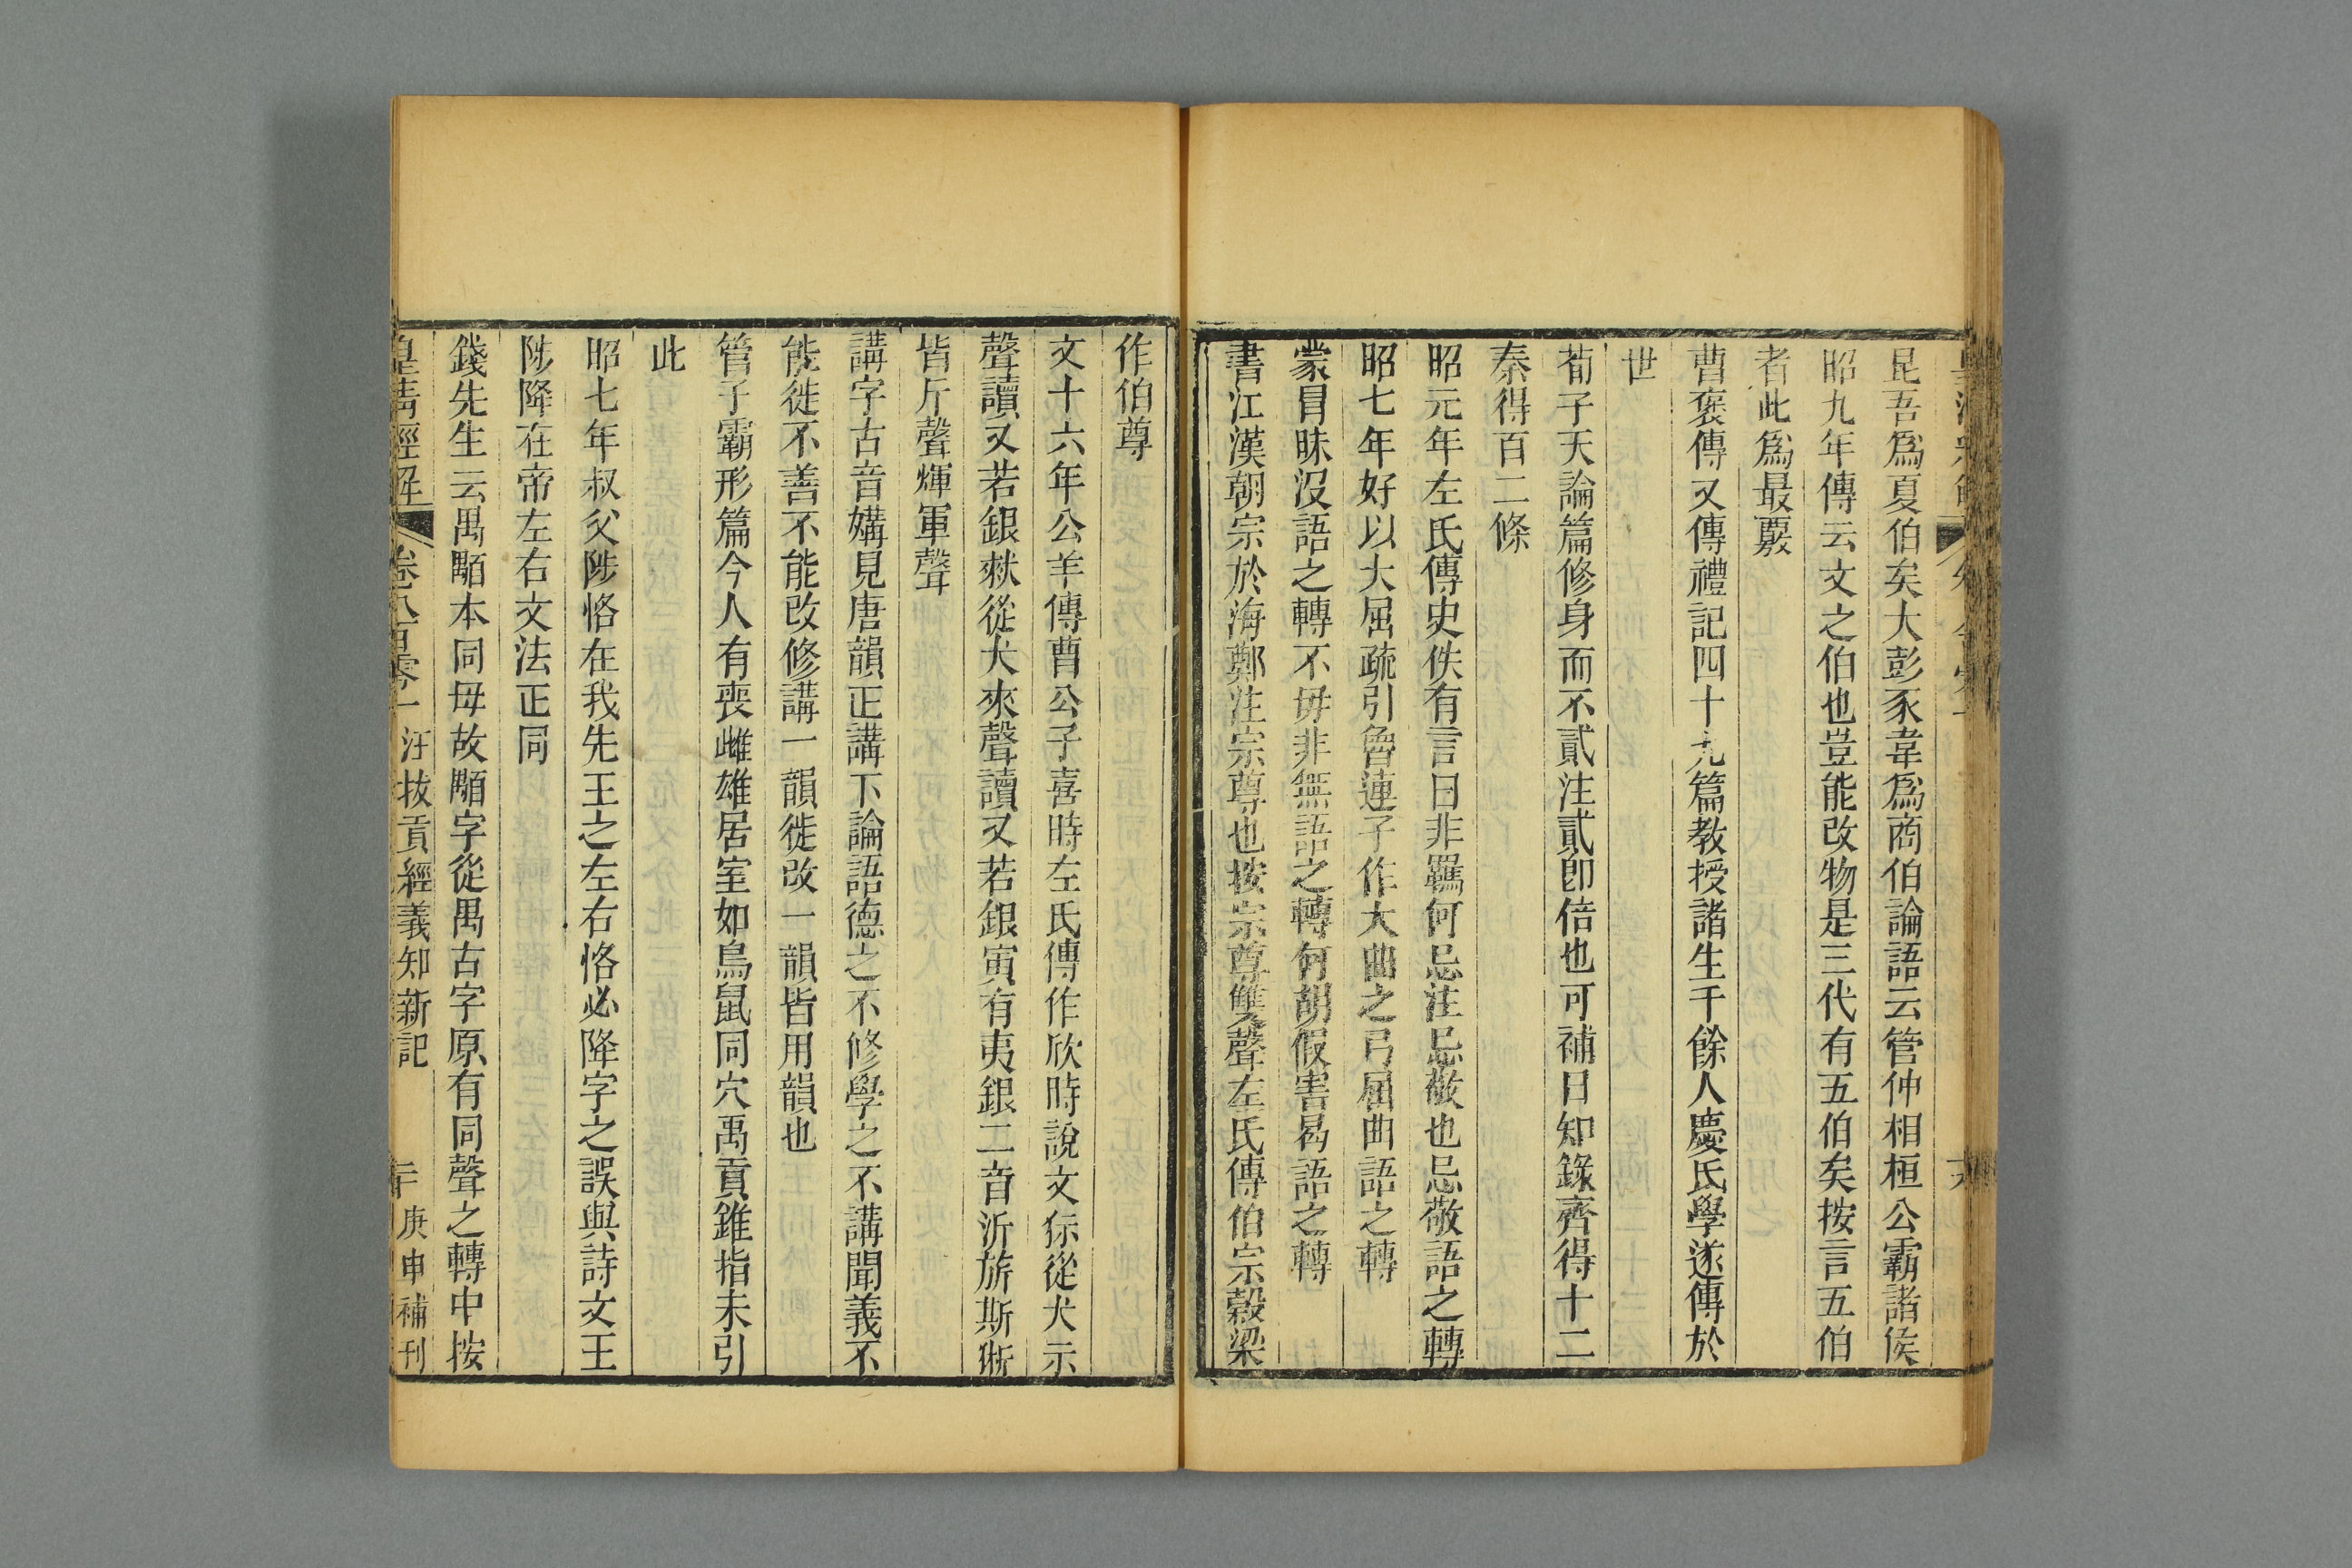 昆吾爲夏伯矣大彭豕韋爲商伯論語云管仲相桓公霸諸侯
昭九年傳云文之伯也豈能改物是三代有五伯矣按言五伯
者此爲最覈
曹褒傳又傳禮記四十九篇教授諸生千餘人慶氏學遂傳於
世
荀子天論篇修身而不貳注貳卽倍也可補日知錄齊得十二
秦得百二條
昭元年左氏傳史佚有言曰非羈何忌注忌敬也忌敬語之轉
昭七年好以大屈疏引魯連子作大曲之弓屈曲語之轉
蒙冒昧沒語之轉不毋非無語之轉何胡假害曷語之轉
書江漢朝宗於海鄭注宗尊也按宗尊雙聲左氏傳伯宗榖梁
作伯尊
文十六年公羊傳曹公子喜時左氏傳作欣時說文狋從犬示
聲讀又若銀猌從犬來聲讀又若銀寅有夷銀二音沂旂斯㹞
皆斤聲煇軍聲
講字古音媾見唐韻正講下論語德之不修學之不講聞義不
能徙不善不能改修講一韻徙改一韻皆用韻也
管子霸形篇今人有喪雌雄居室如鳥鼠同穴禹貢錐指未引
此
昭七年叔父陟恪在我先王之左右恪必降字之誤與詩文王
陟降在帝左右文法正同
錢先生云禺顒本同毋故顒字從禺古字原有同聲之轉中按
皇淸經解 卷八百零一 汪拔貢經義知新記 二十 庚申補刊